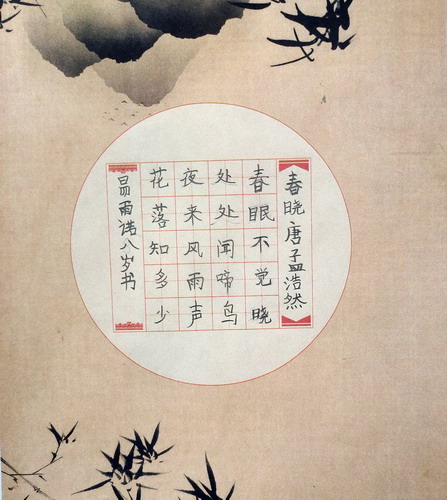 春晓唐孟浩然
春眠不觉晓
处处闻啼鸟
夜来风雨声
花落知多少
昌雨诺八岁书